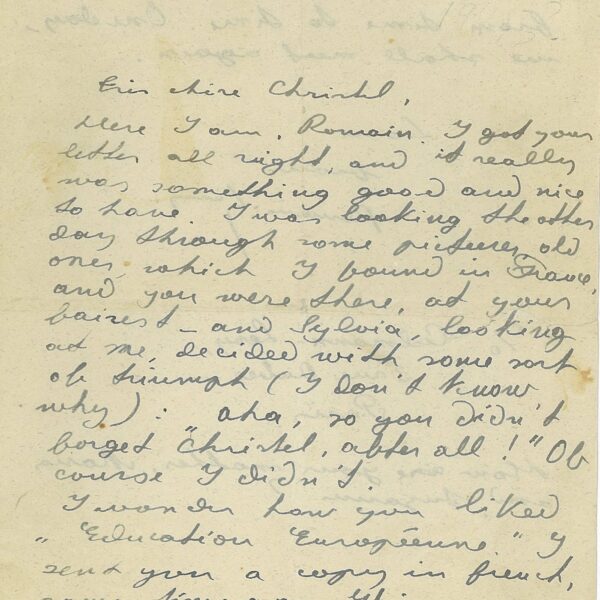 chère Christel,
Here I am, Romain. I got your
letter all right, and it really
was something good and nice
to have. I was looking the other
day through some pictures, old
ones, which I found in France,
and you were there, at your
fairest – and Sylvia, looking
at me, decided with some sort
of triumph (I don't know
why) : aha, so you didn't
forget "Christel, after all!" Of
course I didn't.
I wonder how you liked
„Education Européenne." I
sent you a copy in french,
some time